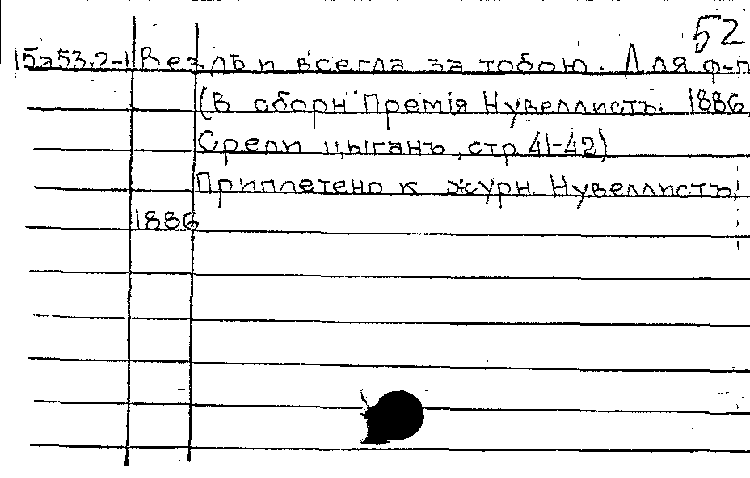 52
15253.2-1 Вездѣ и всегда за тобою. Для ф-п
(В сборн. Премія Нувеллистъ. 1886,
Среди цыганъ, стр. 41-42)
Приплетено к журн. Нувеллистъ,
1886